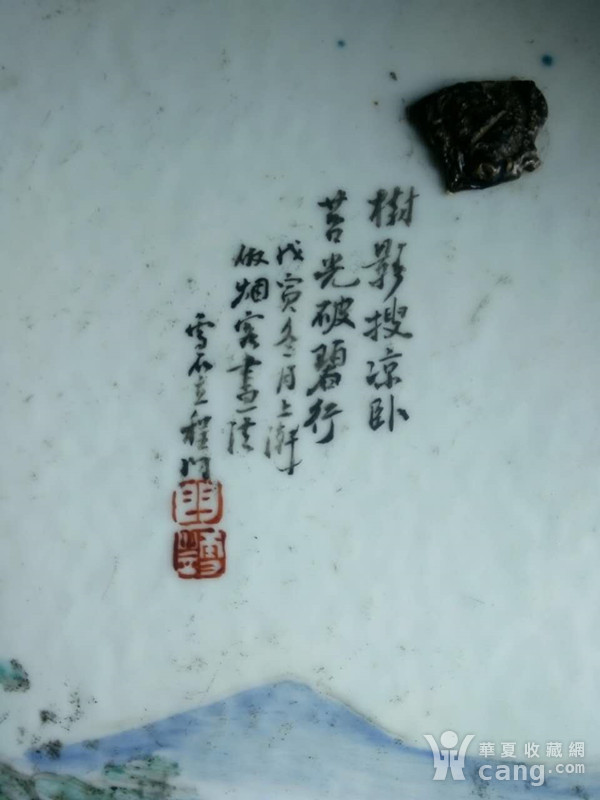 樹影搜涼臥
苔光破碧行
戊寅冬月上澣
倣烟客畫法
雪笠程門
門
華夏收藏網
cang.com